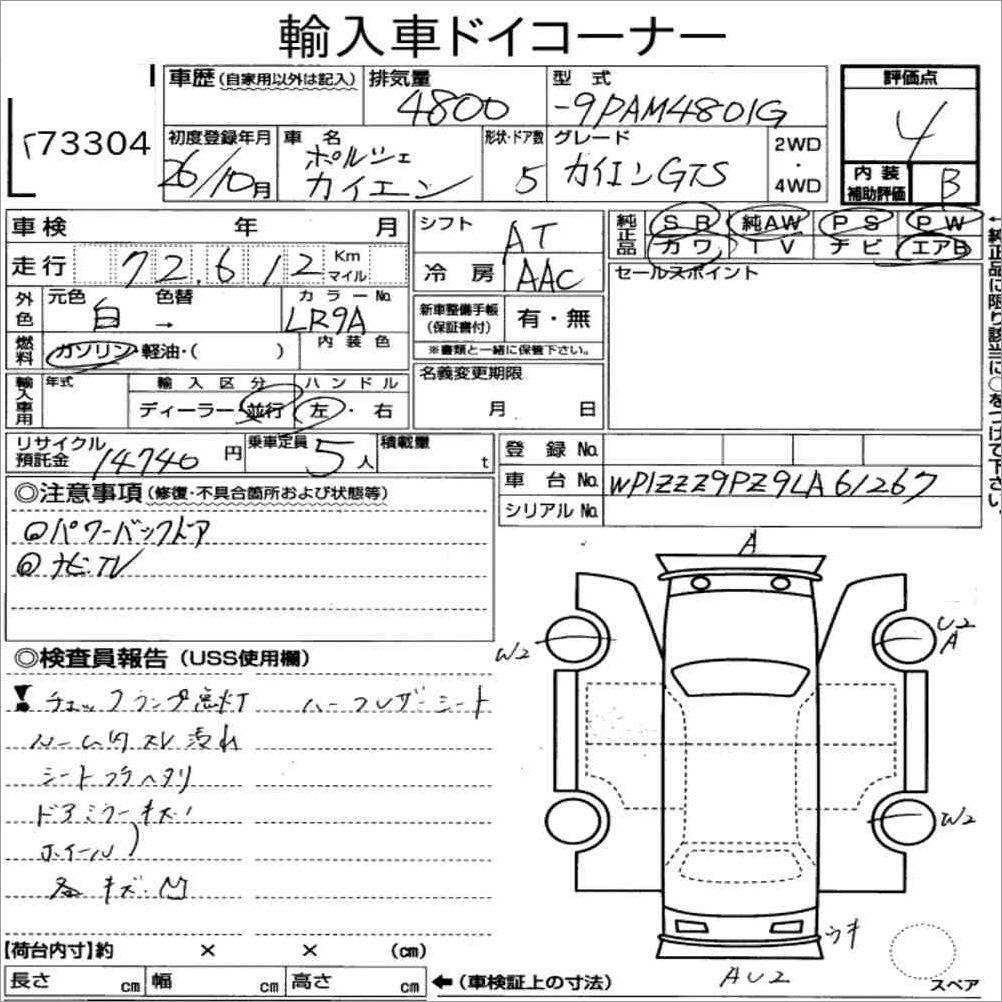 輸入車ドイコーナー
車歴(自家用以外は記入) 排気量 4800 型式 -9PAM4801G 評価点 4
73304
初度登録年月 26/10月 車名 ポルシェ カイエン 形状・ドア数 5 グレード カイエンGTS 2WD・4WD 内装補助評価 B
車検 年 月 シフト AT 純正品 SR 純AW PS PW
カワ TV ナビ エアB
走行 72,612 Km マイル 冷房 AAC セールスポイント
外色 元色 白 色替 → カラーNo. LR9A 新車整備手帳(保証書付) 有・無
※書類と一緒に保管下さい。
燃料 ガソリン・軽油・( ) 内装色
輸入車用 年式 輸入区分 ディーラー・並行 ハンドル 左・右 名義変更期限 月 日
←純正品に限り該当に○をつけて下さい。
リサイクル預託金 14740円 乗車定員 5人 積載量 t 登録No.
車台No. WP1ZZZ9PZ9LA61267
シリアルNo.
◎注意事項(修復・不具合箇所および状態等)
◎パワーバックドア
◎ナビ.TV
A
U2
A
W2
◎検査員報告(USS使用欄)
! チェックランプ点灯 ハーフレザーシート
ルーム内スレ汚れ
シートウラヘタリ
ドアミラーキズ
ホイール)
W2
各キズ.凹
ウキ
AU2
【荷台内寸】約 × × (cm)
長さ cm 幅 cm 高さ cm ←(車検証上の寸法)
スペア